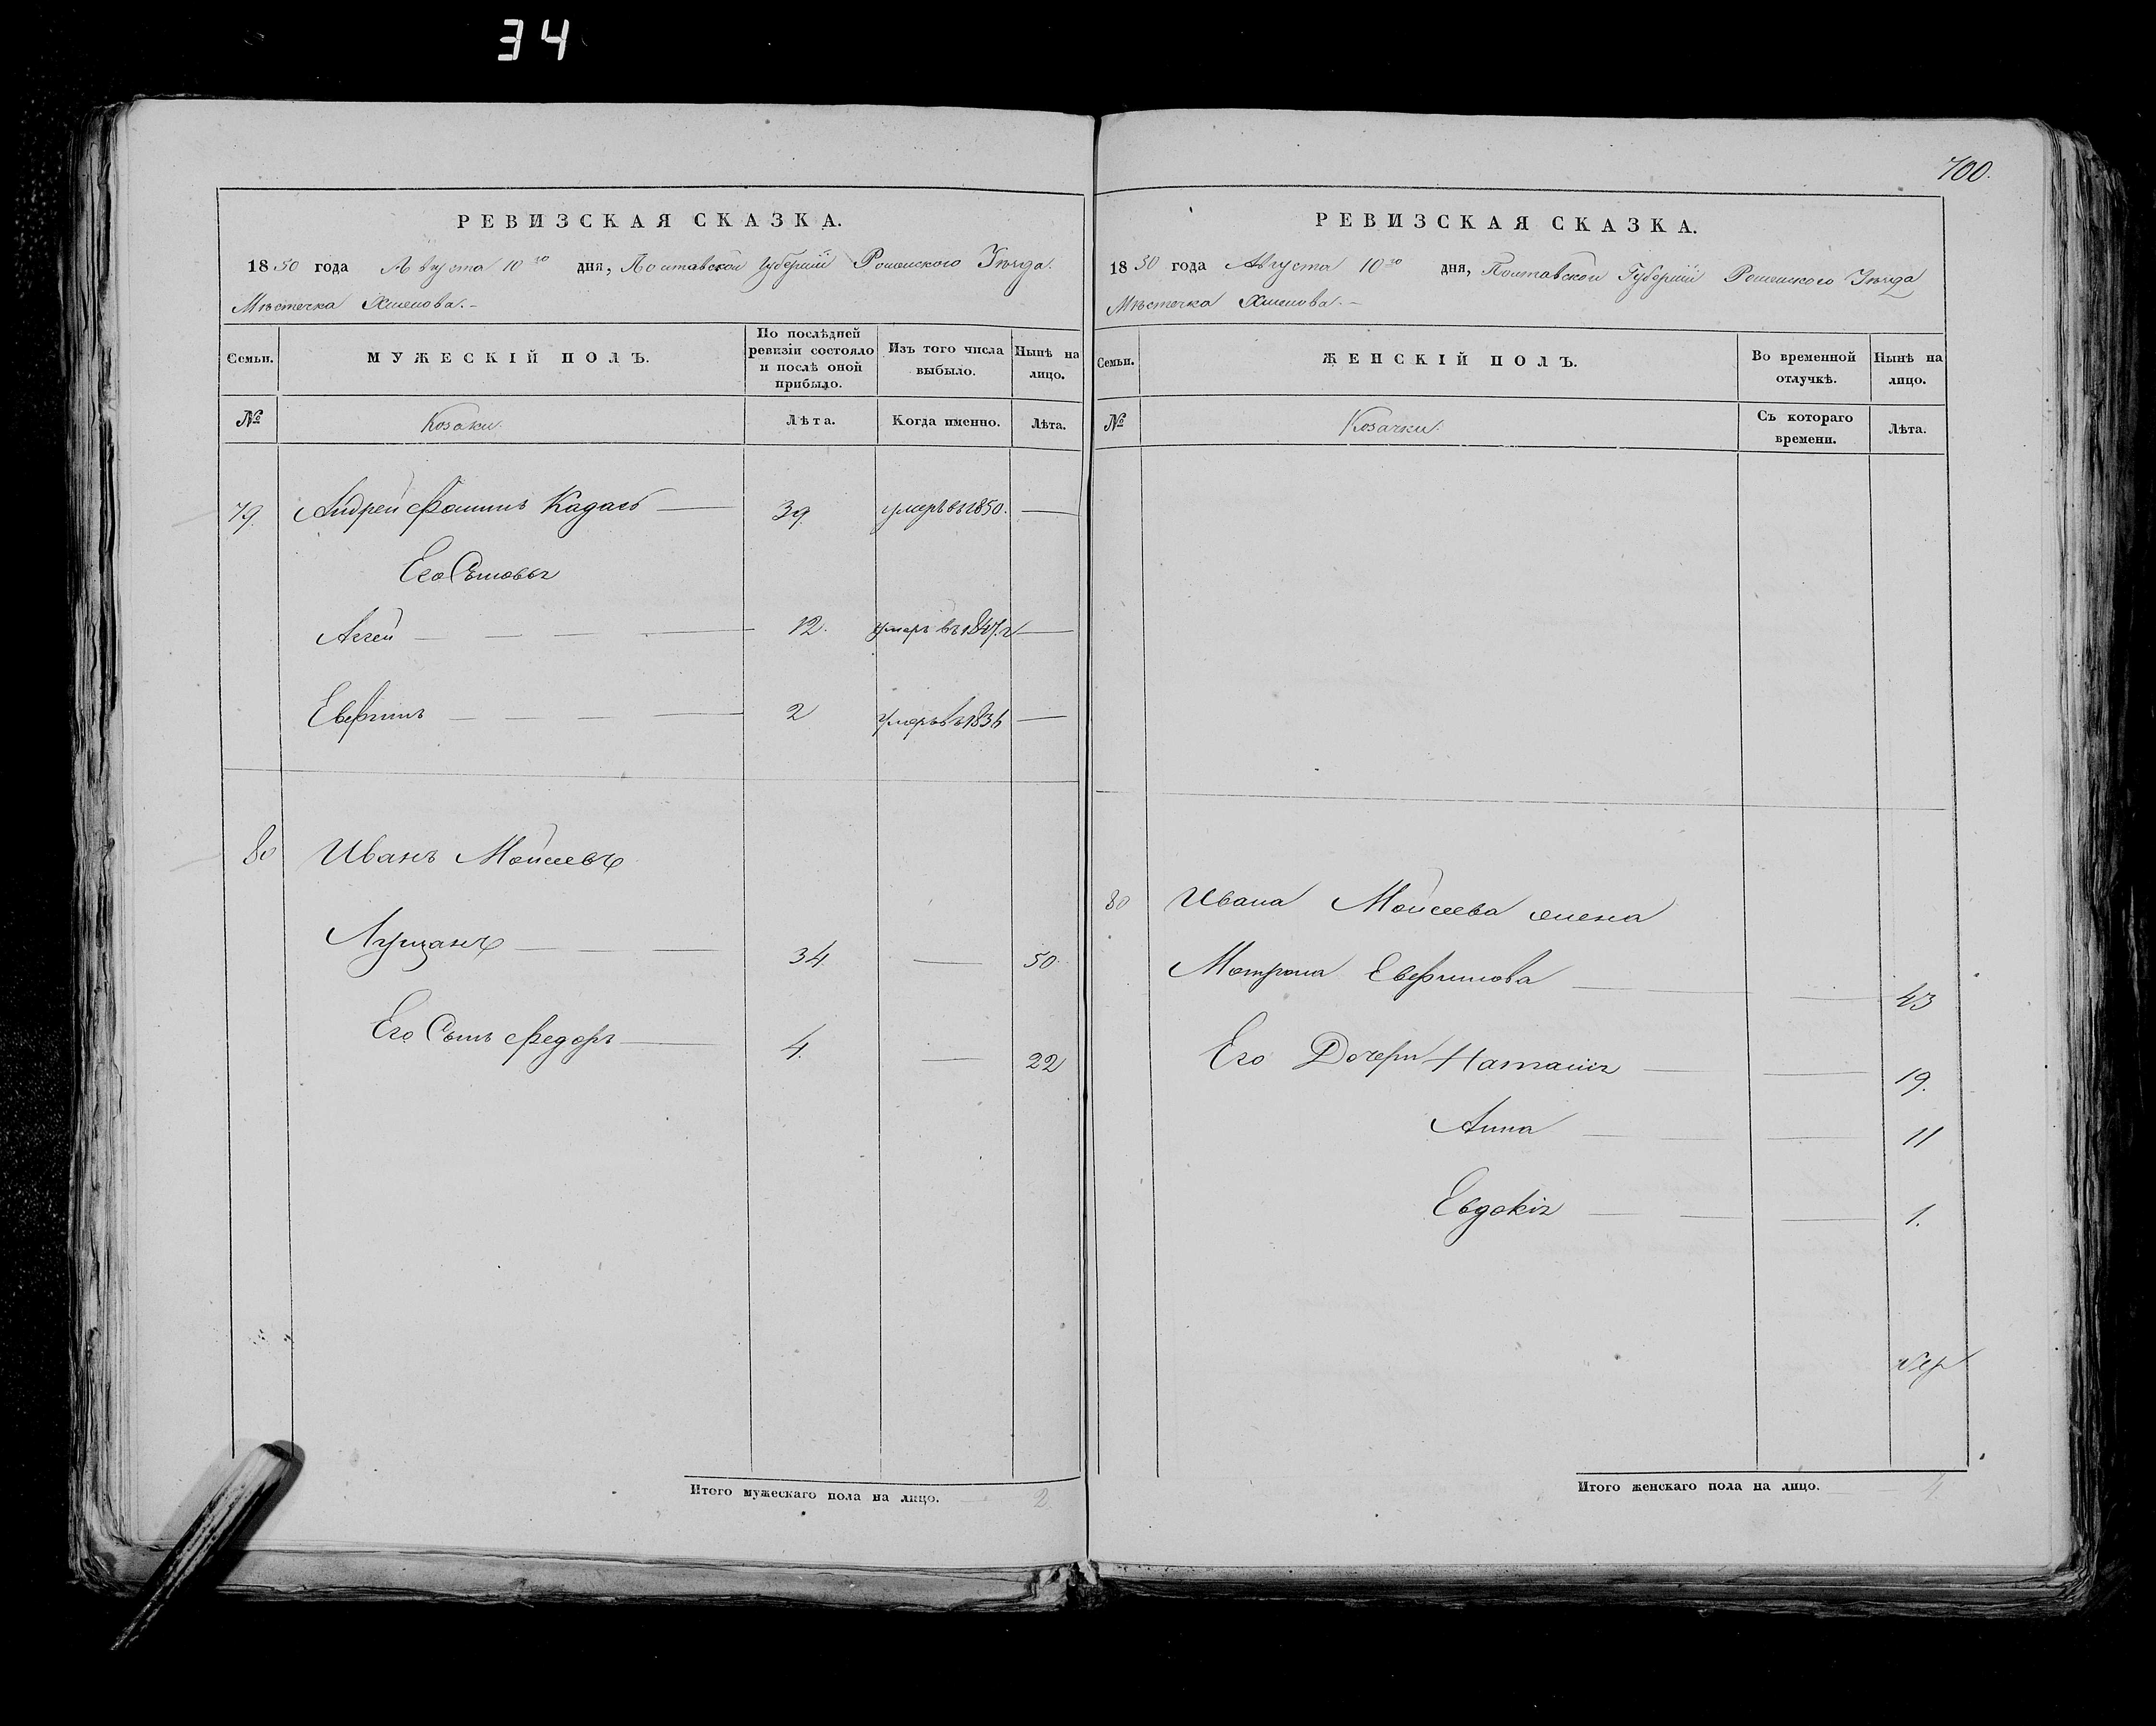 34
700.
РЕВИЗСКАЯ СКАЗКА.
1850 года Августа 10го дня, Полтавской Губерніи Роменского Уѣзда.
Мѣстечка Хмелова.-
Семьи.
МУЖЕСКІЙ ПОЛЪ.
По послѣдней ревизіи состояло и послѣ оной прибыло.
Изъ того числа выбыло.
Нынѣ на лицо.
№
Козаки.
Лѣта.
Когда именно.
Лѣта.
79. Андрей Фоминъ 39. умеръ въ 1850. —
Его Сыновья
Аггей — 12. умеръ въ 1847. г —
Евфимъ — 2 умеръ въ 1836 —
80 Иванъ Мойсеевъ
Лущанъ — 34. — 50.
Его Сынъ Федоръ — 4. — 22
Итого мужескаго пола на лицо. 2
РЕВИЗСКАЯ СКАЗКА.
1850 года Августа 10го дня, Полтавской Губерніи Роменского Уѣзда
Мѣстечка Хмелова.-
Семьи.
ЖЕНСКІЙ ПОЛЪ.
Во временной отлучкѣ.
Нынѣ на лицо.
№
Козачки.
Съ котораго времени.
Лѣта.
80 Ивана Мойсеева жена
Мотрона Евфимова — — 43
Его Дочери Наталія — — 19.
Анна — — 11
Евдокія — — 1.
Итого женскаго пола на лицо. 4.